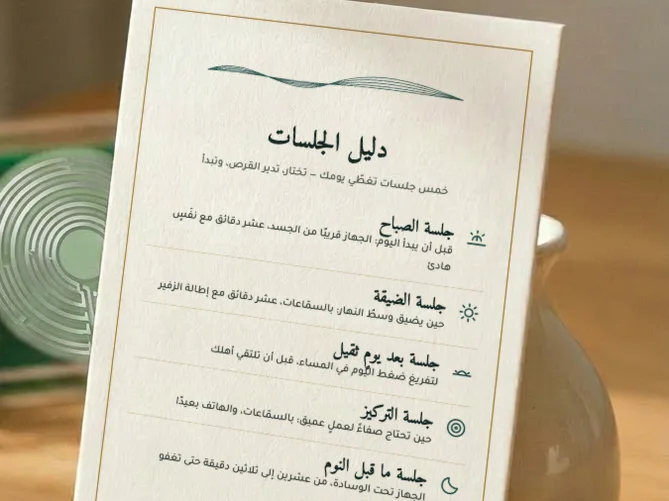 دليل الجلسات
خمس جلسات تغطّي يومك – تختار، تدير القرص، وتبدأ
جلسة الصباح
قبل أن يبدأ اليوم: الجهاز قريبًا من الجسد، عشر دقائق مع نفَسٍ
هادئ
جلسة الضيقة
حين يضيق وسطُ النهار: بالسمّاعات، عشر دقائق مع إطالة الزفير
جلسة بعد يومٍ ثقيل
لتفريغ ضغط اليوم في المساء، قبل أن تلتقي أهلك
جلسة التركيز
حين تحتاج صفاءً لعملٍ عميق: بالسمّاعات، والهاتف بعيدًا
جلسة ما قبل النوم
الجهاز تحت الوسادة، من عشرين إلى ثلاثين دقيقة حتى تغفو